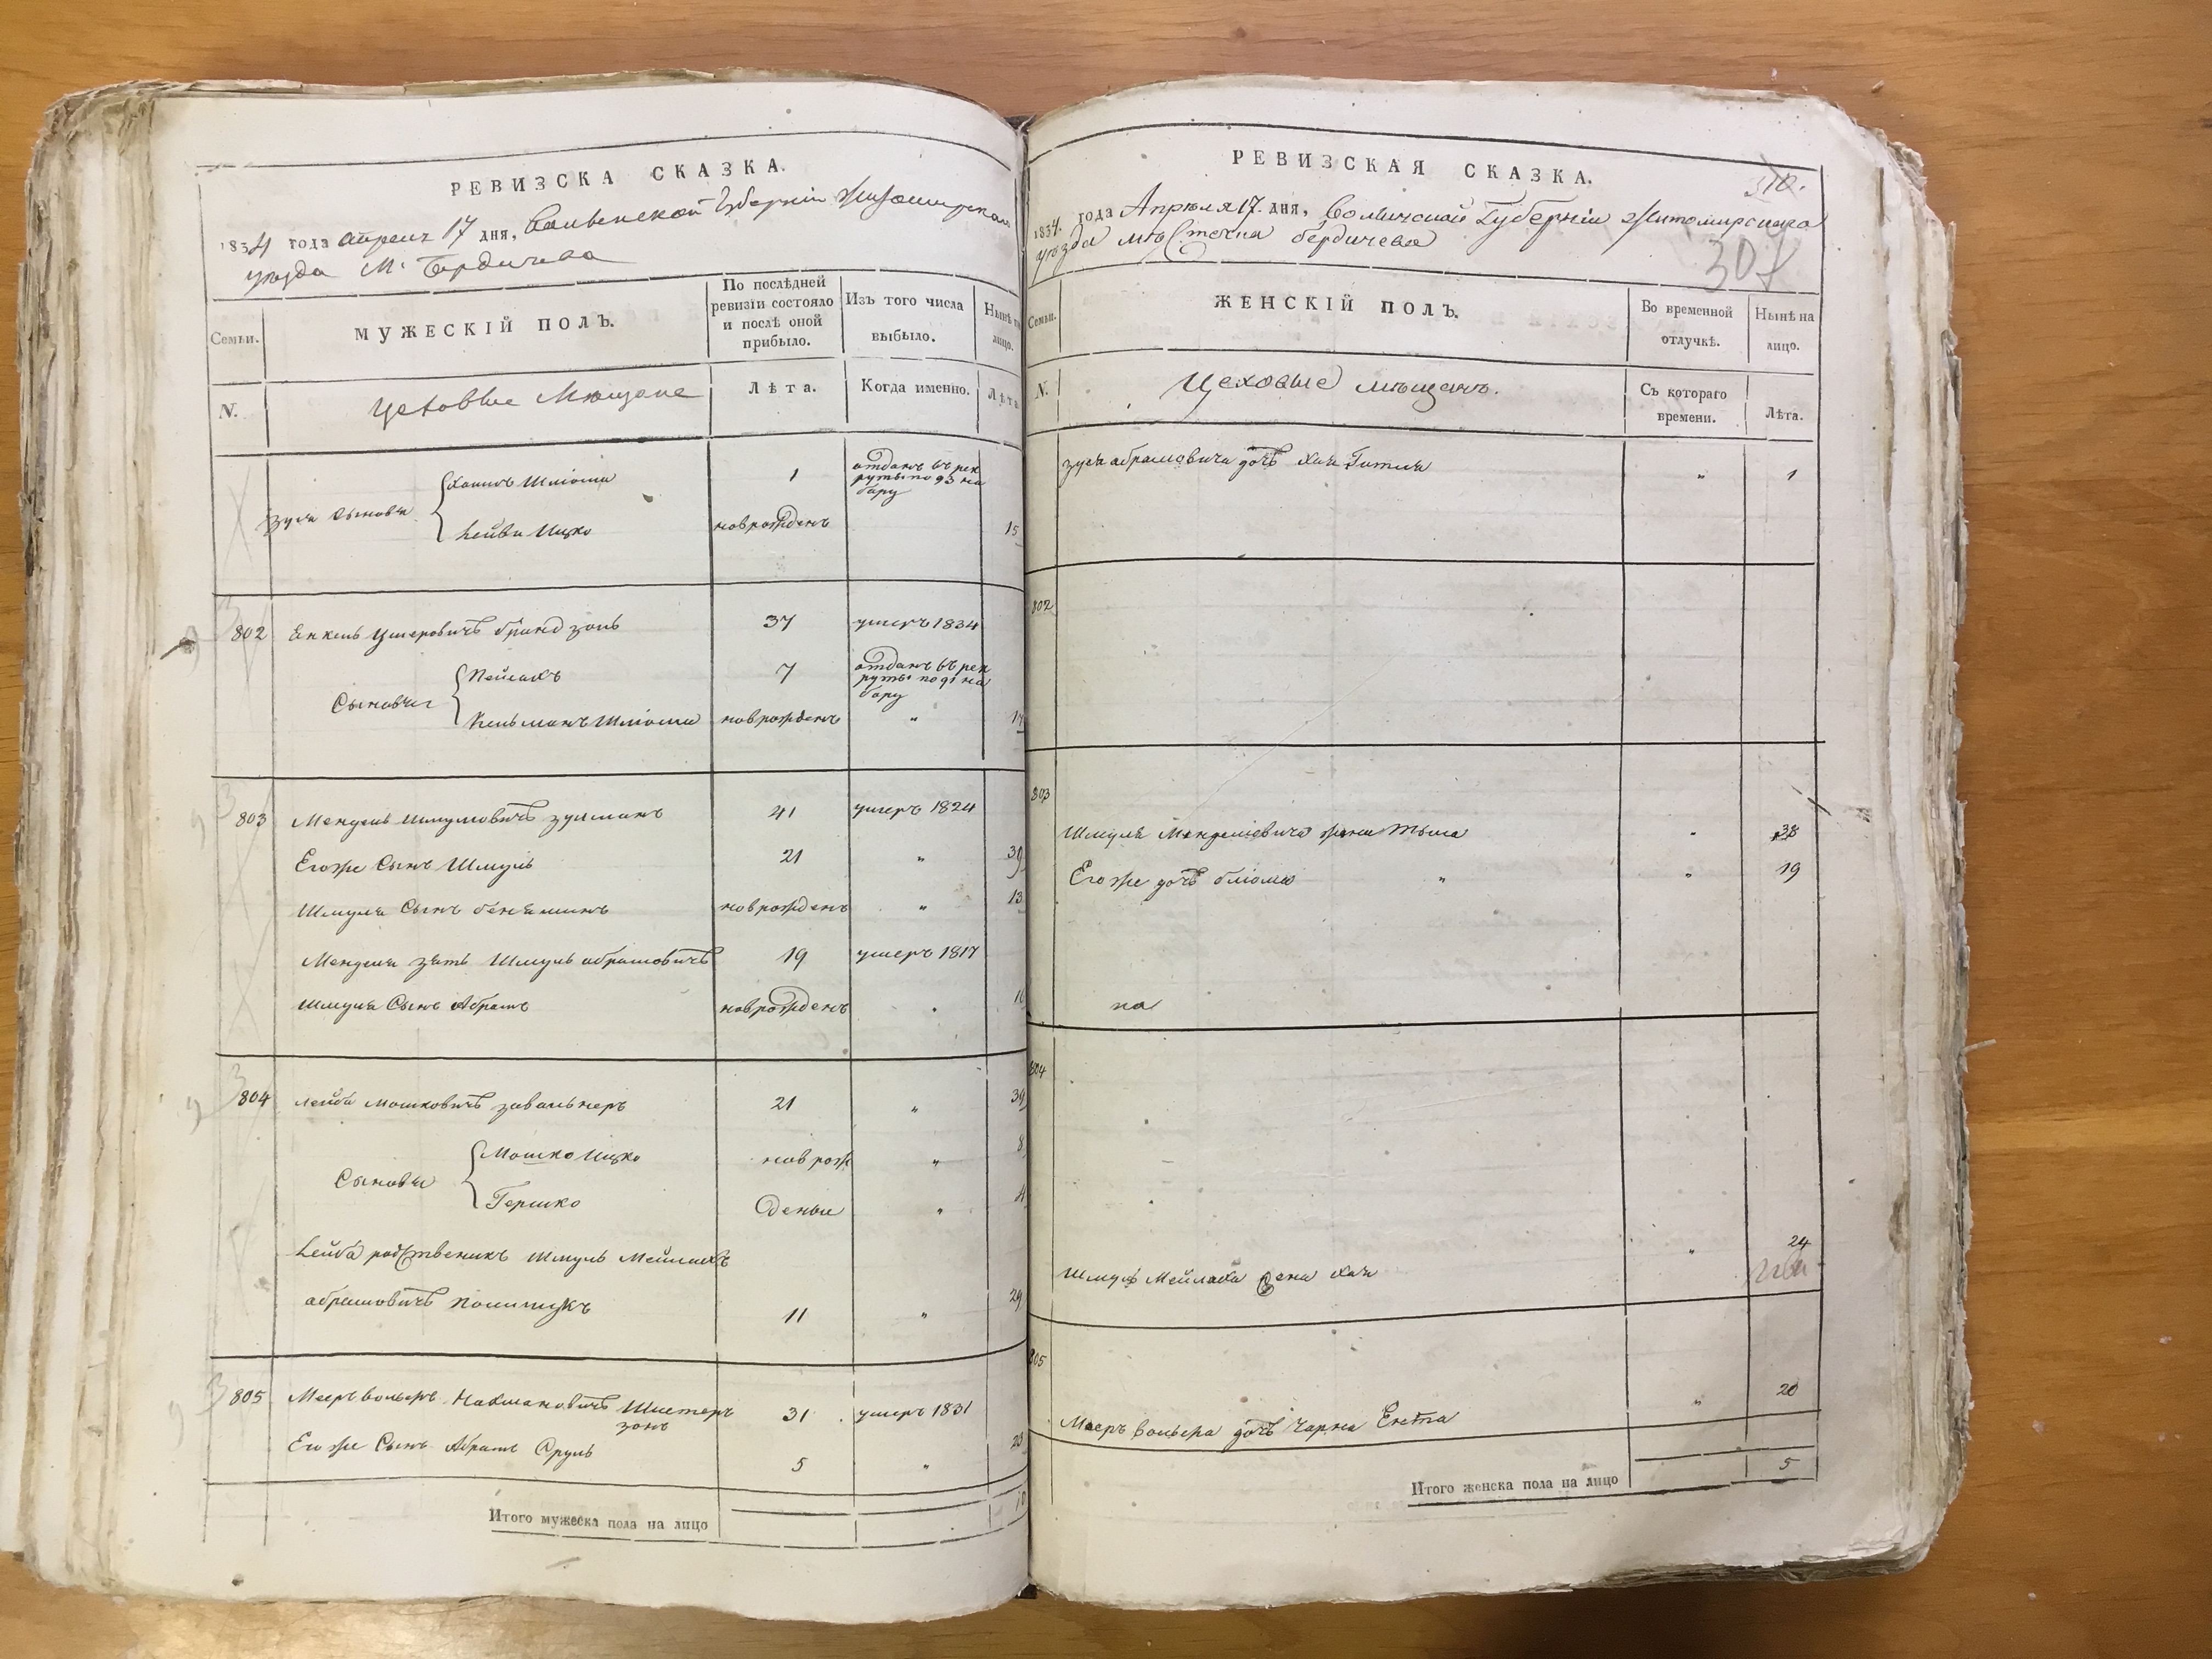 РЕВИЗСКА СКАЗКА.
1834 года апреля 17 дня, Волынской Губернии Житомирскаго
уезда М. Бердичева
Семьи.
МУЖЕСКІЙ ПОЛЪ.
По послѣдней
ревизіи состояло
и послѣ оной
прибыло.
Изъ того числа
выбыло.
Нынѣ на
лицо.
N.
Цеховые Мещане
Лѣта.
Когда именно.
Лѣта
Зуся сыновья
Хаимъ Шліома
1
отданъ въ рек
руты по 93 на
бору
Лейби Ицко
новрожденъ
15
802
Енкель Ушеровичъ Брандзонъ
37
умеръ 1834
Сыновья
Пейсахъ
7
отданъ въ рек
руты по 91 на
бору
Кельманъ Шліома
новрожденъ
"
803
Мендель Шмулиовичъ Зуслманъ
41
умеръ 1824
Егоже Сынъ Шмуль
21
"
39
Шмуля Сынъ Беняминъ
новрожденъ
"
13
Менделя зять Шмуль Абрамовичъ
19
умеръ 1817
Шмуля Сынъ Абрамъ
новрожденъ
804
Лейба Мошковичъ Завальнеръ
21
"
39
Сыновья
Мошко Ицко
новрож
"
8
Гершко
деные
"
4
Лейба родственикъ Шмуль Мейлахъ
Абрамовичъ
11
"
29
805
Мееръ Вольеръ Нахмановичъ Шистеръ
зонъ
31
умеръ 1831
Егоже Сынъ Абрамъ Сруль
5
"
23
Итого мужеска пола на лицо
10
РЕВИЗСКАЯ СКАЗКА.
310.
1834 года Апреля 17. дня, Волынской Губерніи Житомирскаго
уезда местечка Бердичева
307
Семьи.
ЖЕНСКІЙ ПОЛЪ.
Во временной
отлучкѣ.
Нынѣ на
лицо.
N.
Цеховые мещанъ.
Съ котораго
времени.
Лѣта.
Зуся Абрамовича дочь Хая Гитля
"
1
802
803
Шмуля Менделіовича жена Тыма
"
38
Егоже дочь Бліома
"
"
19
на
804
Шмуля Мейлаха жена Хая
"
24
805
Мееръ Вольера дочь Чарна Ента
"
20
Итого женска пола на лицо
5